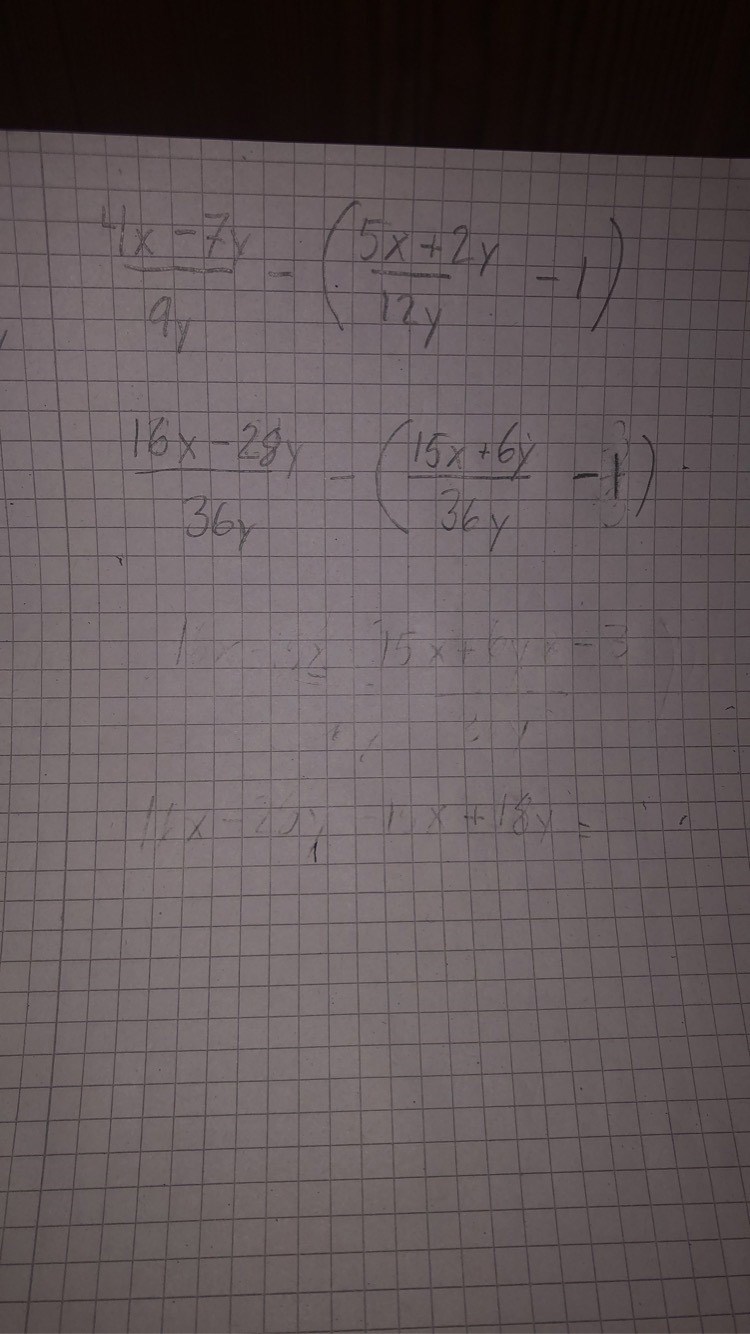 4x - 7y / 9y - ( 5x + 2y / 12y - 1 )
16x - 28y / 36y - ( 15x + 6y / 36y - 1 )
15x + 6y - 3
x + 18y =